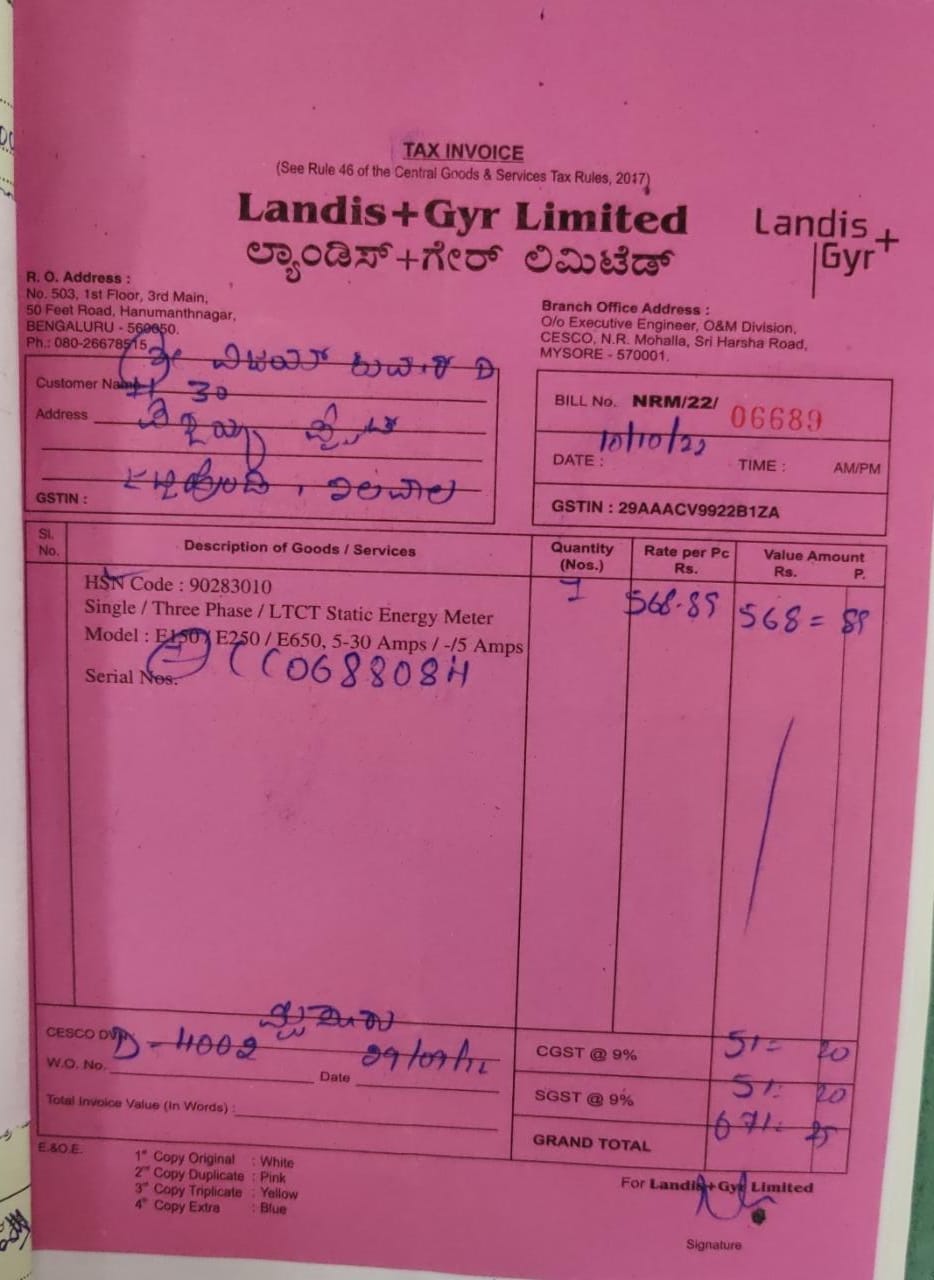 TAX INVOICE
(See Rule 46 of the Central Goods & Services Tax Rules, 2017)
Landis+Gyr Limited
ಲ್ಯಾಂಡಿಸ್+ಗೇರ್ ಲಿಮಿಟೆಡ್
Landis+
Gyr
R. O. Address :
No. 503, 1st Floor, 3rd Main,
50 Feet Road, Hanumanthnagar,
BENGALURU - 560050.
Ph.: 080-26678515
Branch Office Address :
O/o Executive Engineer, O&M Division,
CESCO, N.R. Mohalla, Sri Harsha Road,
MYSORE - 570001.
Customer Name
# 30
Address
GSTIN :
BILL No. NRM/22/ 06689
DATE : 10/10/22 TIME : AM/PM
GSTIN : 29AAACV9922B1ZA
Sl. No. Description of Goods / Services Quantity (Nos.) Rate per Pc Rs. Value Amount Rs. P.
HSN Code : 90283010 1 568.89 568 = 89
Single / Three Phase / LTCT Static Energy Meter
Model : E150 / E250 / E650, 5-30 Amps / -/5 Amps
Serial Nos. 0688084
CESCO Dvn.
W.O. No. D-4002 Date 29/09/22
Total Invoice Value (In Words) :
CGST @ 9% 51= 20
SGST @ 9% 51= 20
GRAND TOTAL 671= 25
E.&O.E.
1st Copy Original : White
2nd Copy Duplicate : Pink
3rd Copy Triplicate : Yellow
4th Copy Extra : Blue
For Landis+Gyr Limited
Signature